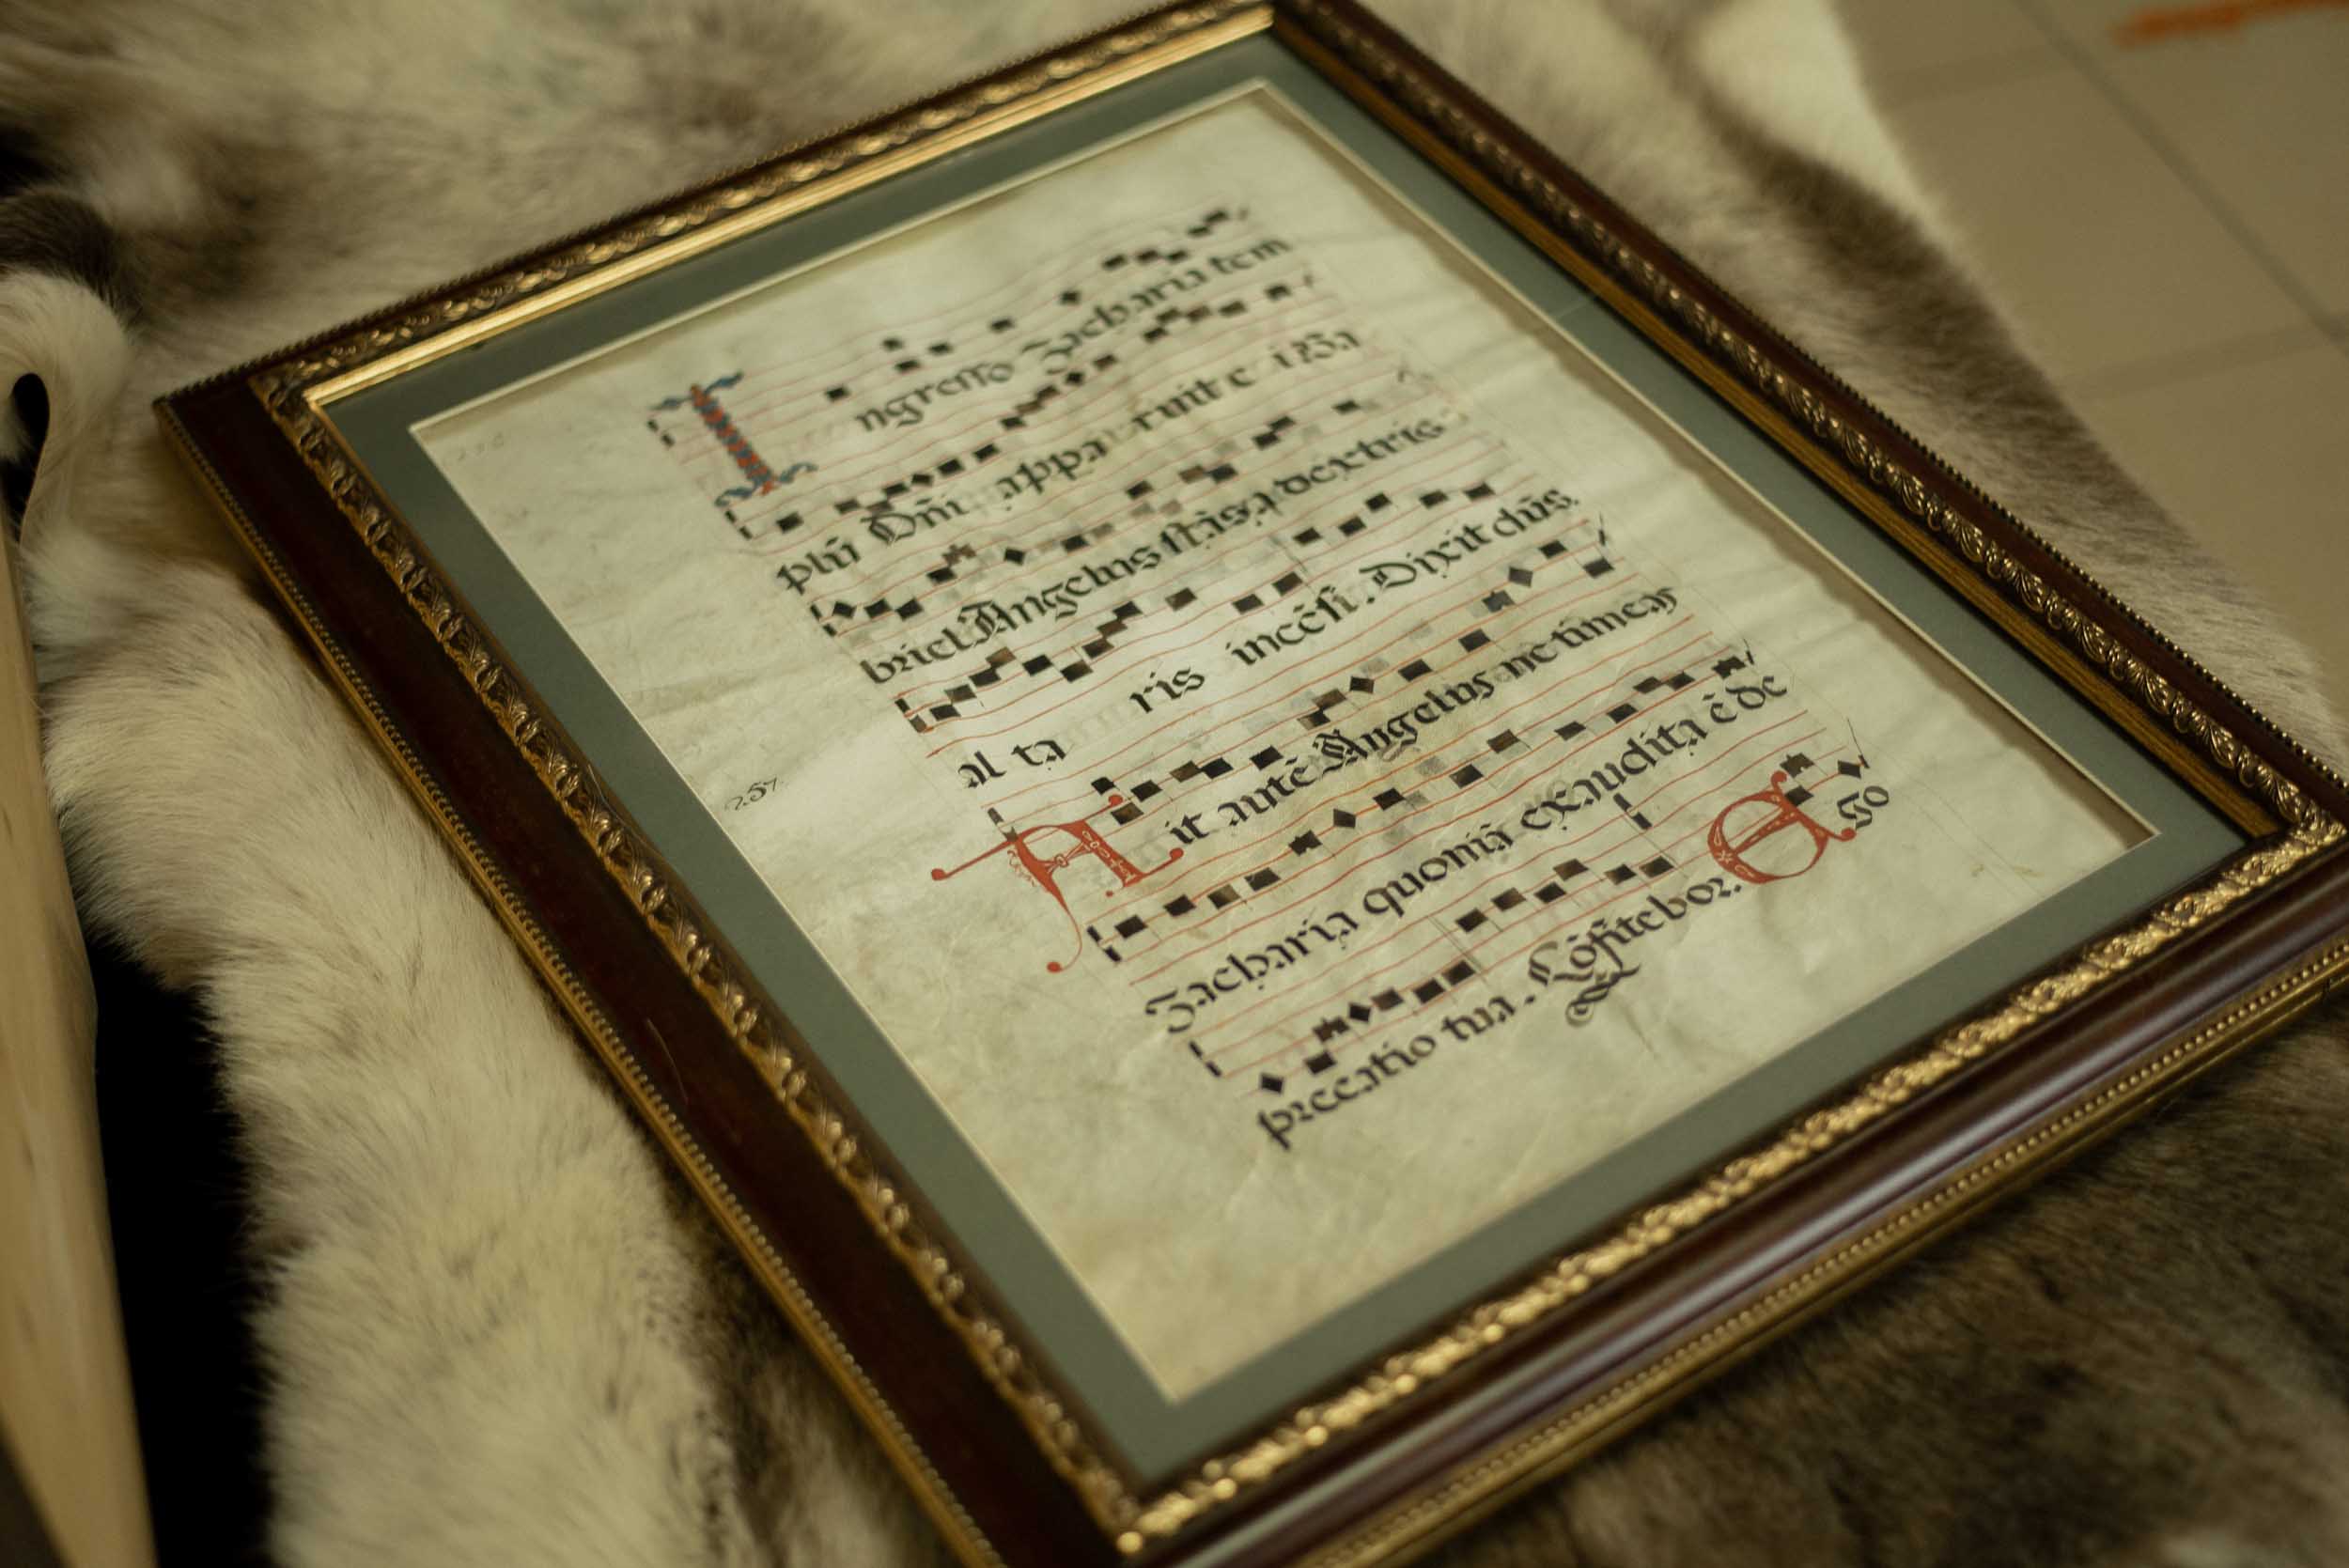 Ingresso Zacharia tem
plũ Dñi apparuit ei gã
briel Angelus stãs a dextris
al ta ris incẽsi. Dixit dñs.
Ait autẽ Angelus ne timeas
Zacharia quoniã exaudita ẽ de
precatio tua. Cõfitebor. Ego
257